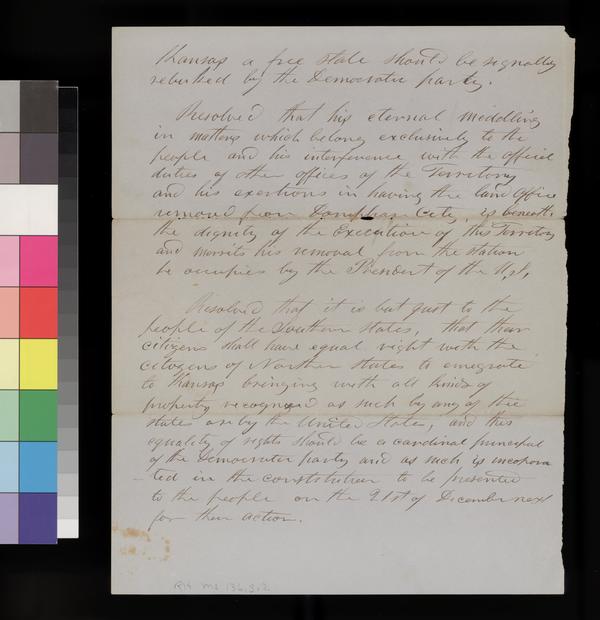 Kansas a free state should be signally
rebuked by the Democratic party.
Resolved that his eternal meddling
in matters which belong exclusively to the
people and his interference with the official
duties of other offices of the Territory
and his exertions in having the land Office
removed from Doniphan City, is beneath
the dignity of the Executive of this Territory
and merrits his removal from the station
he occupies by the President of the U.S.
Resolved that it is but just to the
people of the Southern States, that their
citizens shall have equal right with the
citizens of Northern States to emegrate
to Kansas bringing with all kinds of
property recognized as such by any of the
states or by the United States, and this
equality of rights should be a cardinal principal
of the Democratic party and as such is incorpora
-ted in the constitution to be presented
to the people on the 21st of December next
for their action.
RH MS 136.3.2